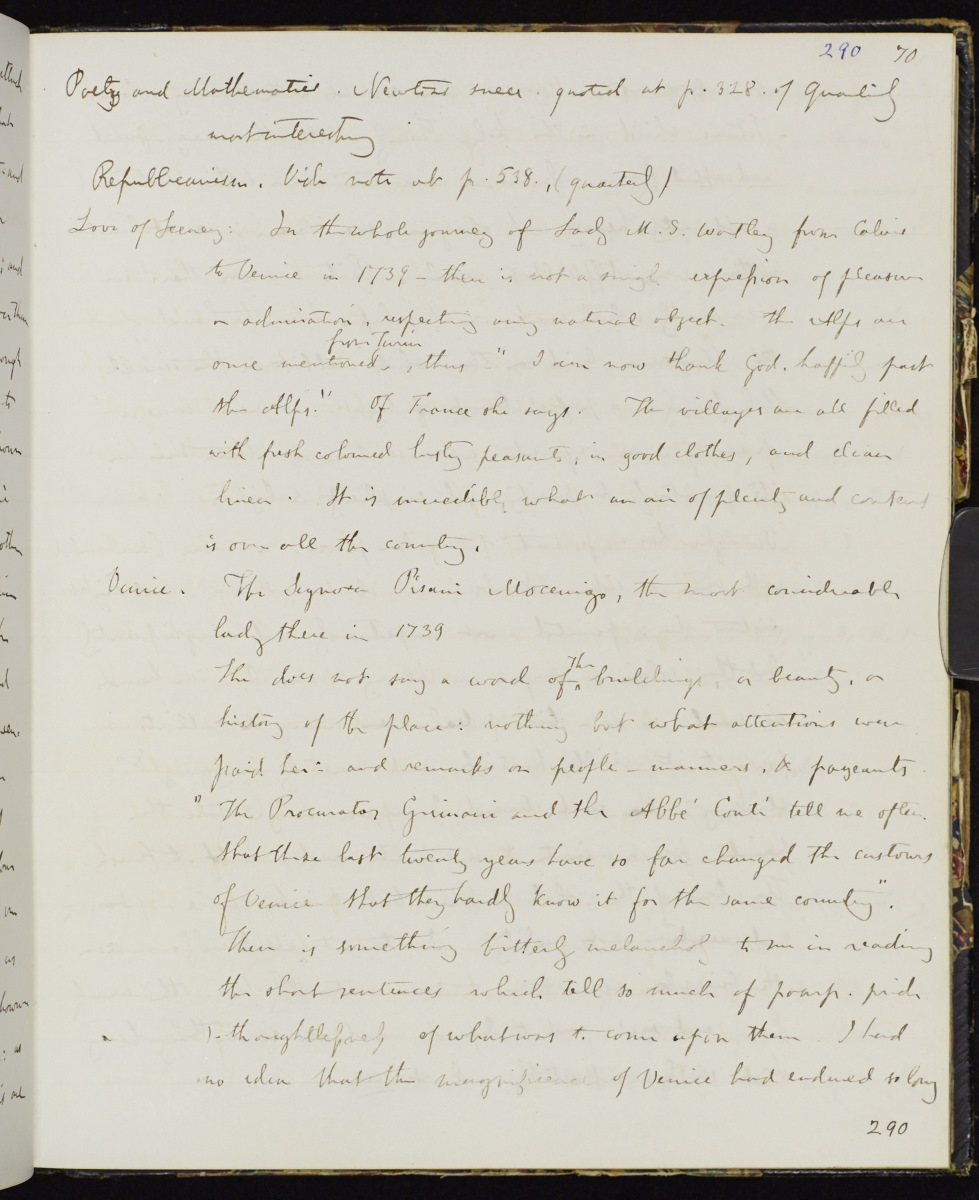 290 70
Poetry and Mathematics. Newtons sneer. quoted at p. 328. of Quarterly
most interesting
Republicanism. Vide note at p. 538., (quarterly)
Love of Scenery: In the whole journey of Lady M. S. Wortley from Calais
to Venice in 1739 - there is not a single expression of pleasure
or admiration, respecting any natural object. The Alps are
from Turin
once mentioned, thus " I am now thank God. happily past
the Alps." Of France she says. The villages are all filled
with fresh coloured lusty peasants, in good clothes, and clean
linen. It is incredible what an air of plenty and content
is over all the country.
Venice. The Signora Pisani Mocenigo, the most considerable
lady there in 1739
the
She does not say a word of buildings, or beauty, or
history of the place: nothing but what attentions were
paid her: and remarks on people - manners, & pageants.
" The Procurator Grimani and the Abbé Conti tell me often
that these last twenty years have so far changed the customs
of Venice that they hardly know it for the same country".
There is something bitterly melancholy to me in reading
the short sentences which tell so much of pomp. pride
thoughtlessness of what was to come upon them. I had
no idea that the magnificence of Venice had endured so long
290